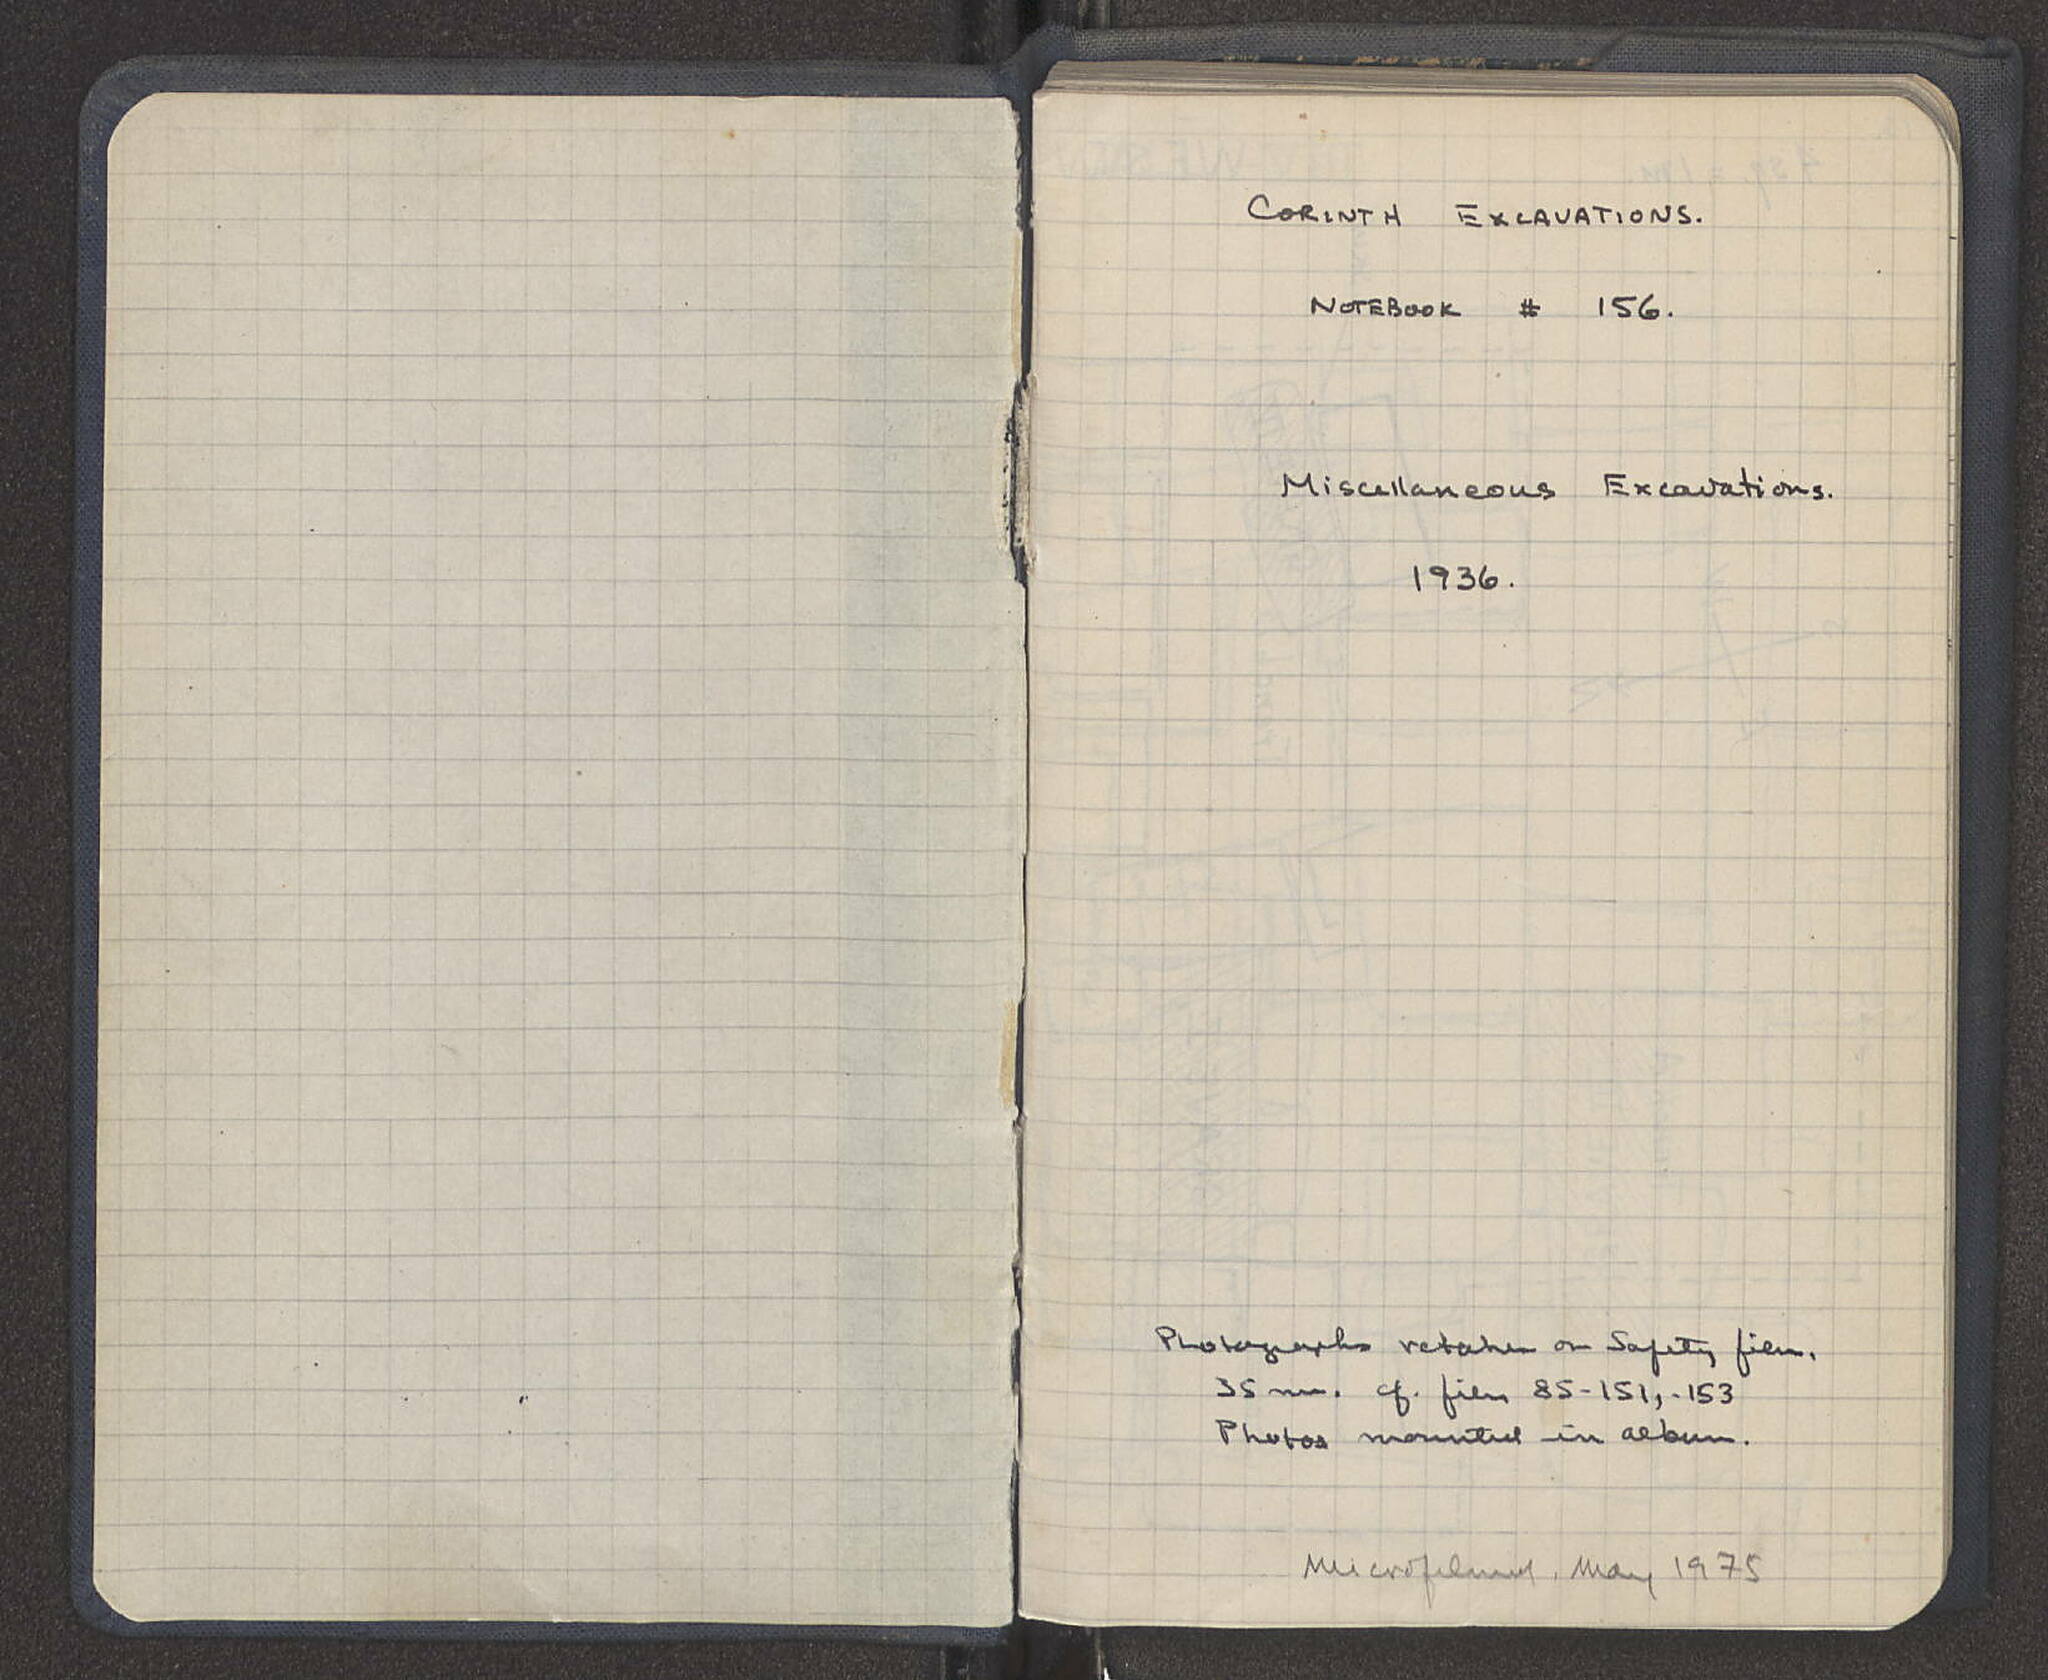 CORINTH EXCAVATIONS.
NOTEBOOK # 156.
Miscellaneous Excavations.
1936.
Photographs retaken on Safety film.
35 mm. cf. film 85-151, -153
Photos mounted in album.
Microfilmed, May 1975